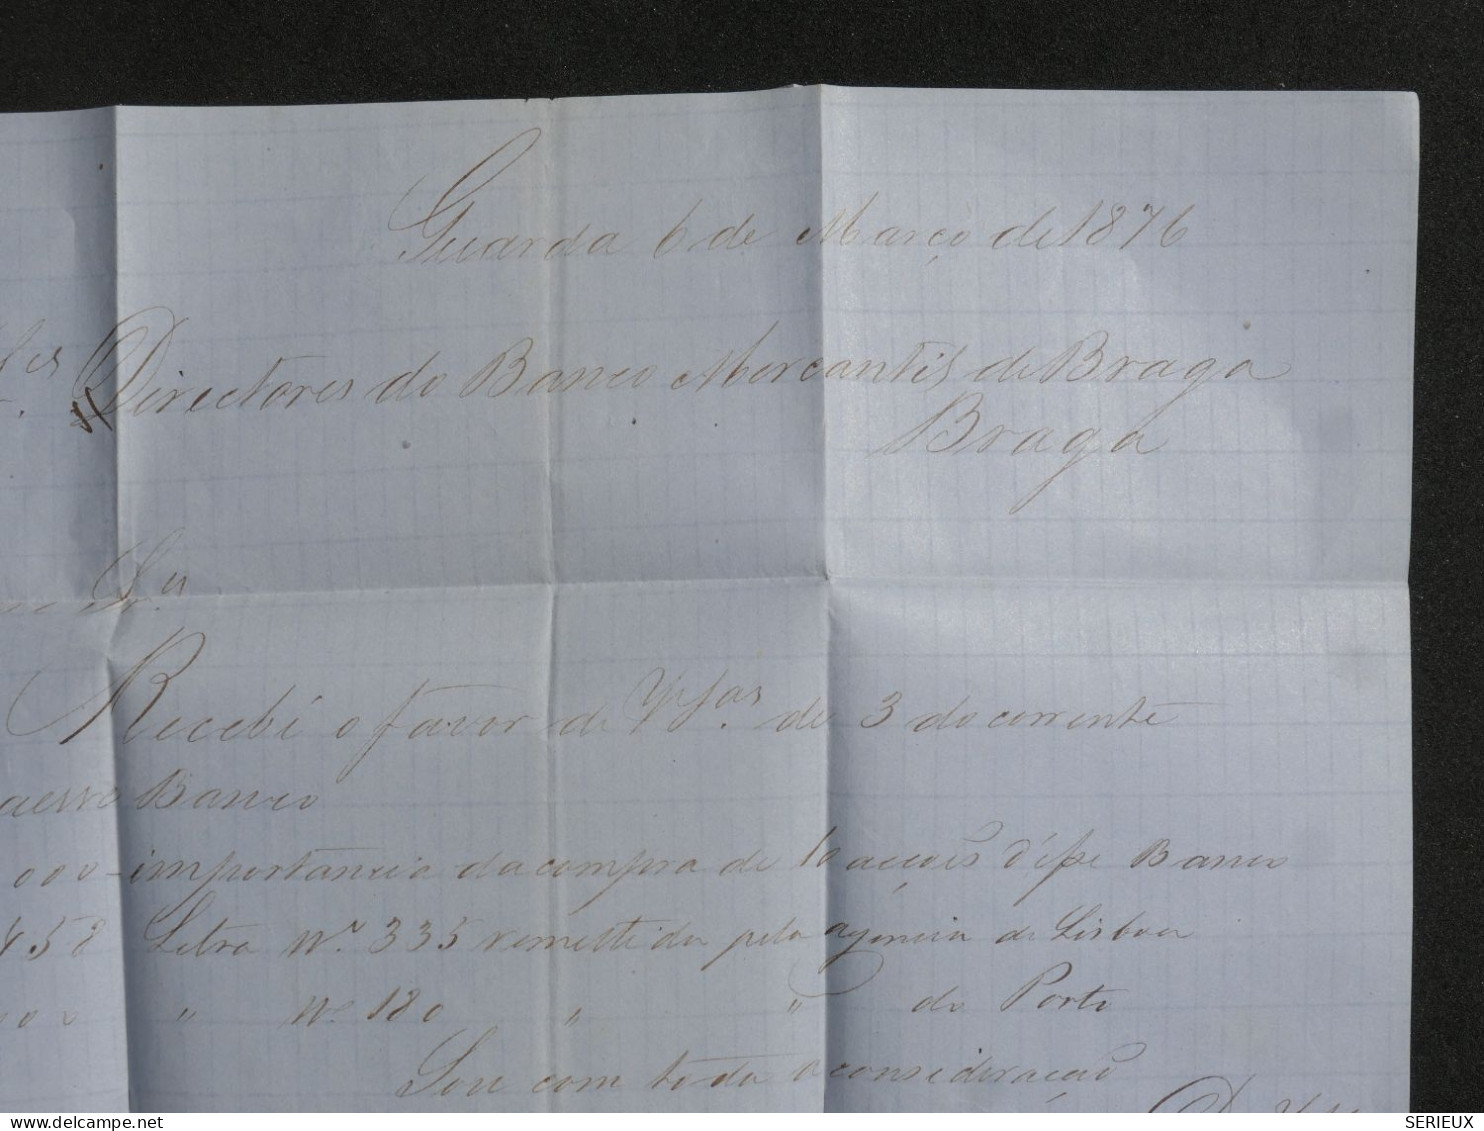 Guarda 6 de Março de 1876
Directores do Banco Mercantil de Braga
Braga
Srs
Recebi o favor de VSas. de 3 do corrente
Banco
000 importancia da compra de 10 acções d'esse Banco
458 Letra Nº 335 remettida pela agencia de Lisboa
" Nº 180 " " do Porto
Sou com toda a consideração
delcampe.net
SERIEUX